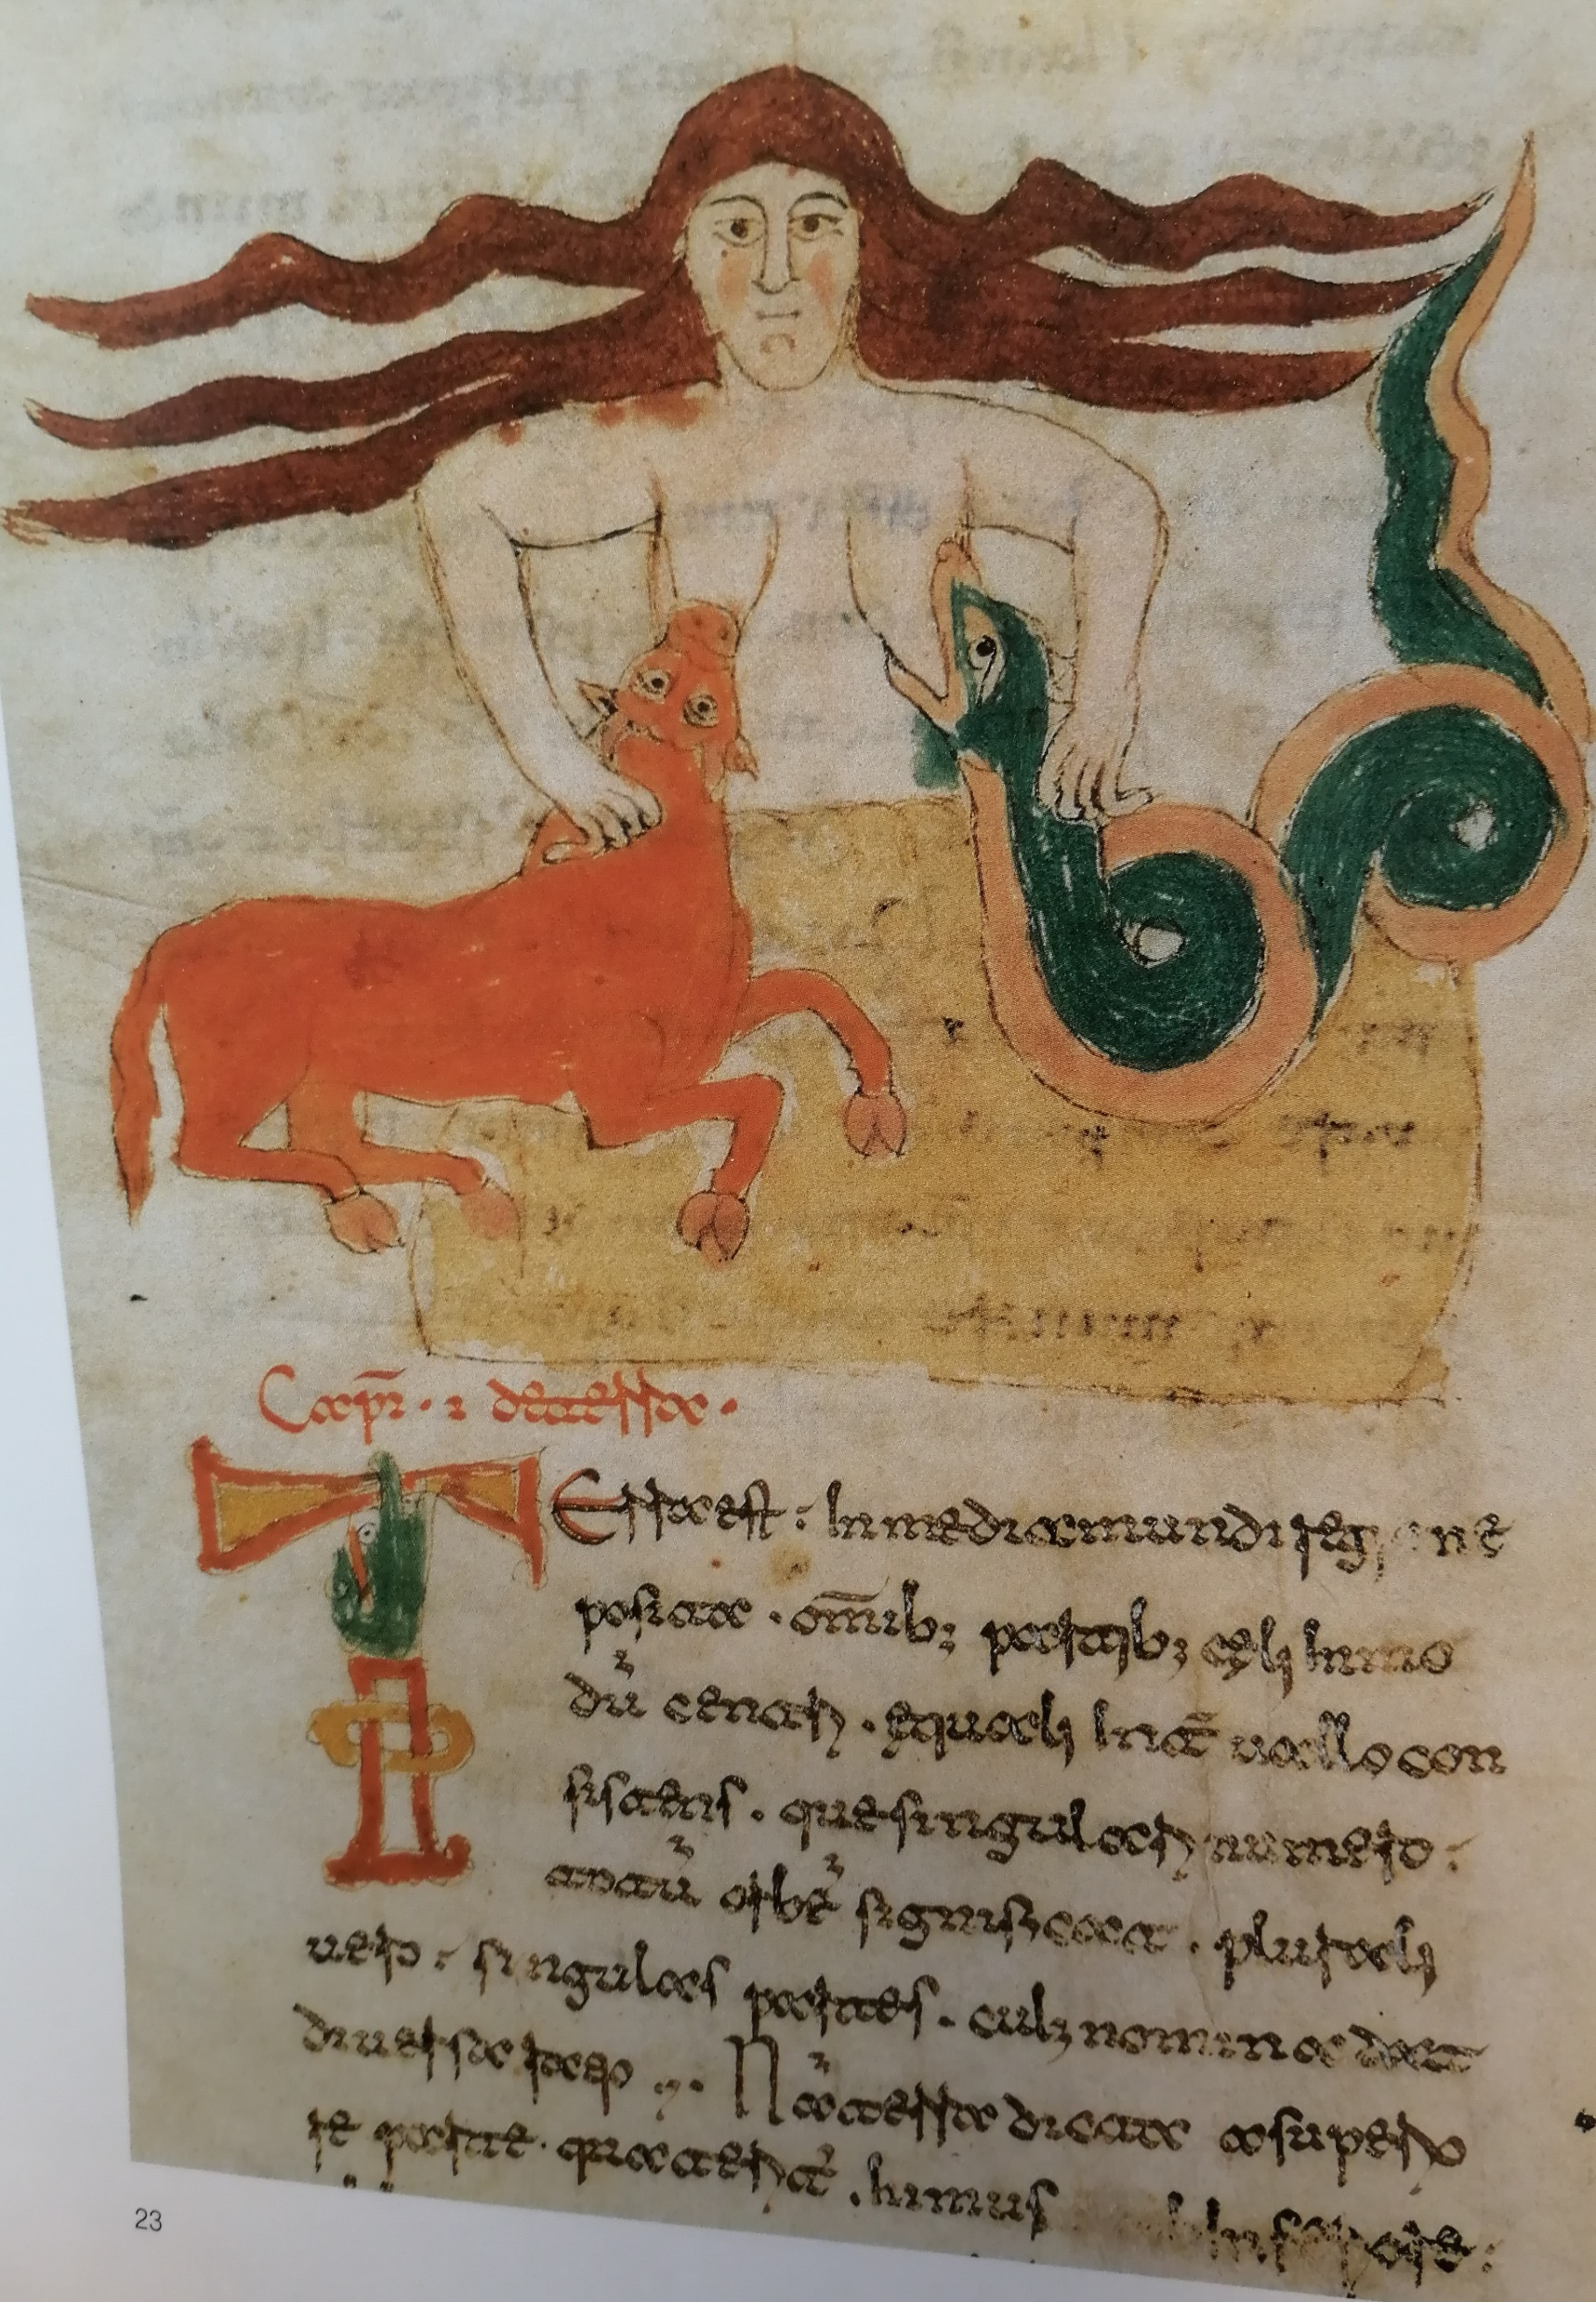 Cap̄ · i de terra ·
TErra est : In media mundi regione
posita · om̄ib; partib; cęli In mo
dū centri · ęquali Int̄uallo con
sistens · que singulari numero :
totū orbē significat · plurali
uero : singulas partes · cui; nomina dat
diuersa ratio ·,· Nā terra dicta a superio
re parte · qua terit̄ · humus
23